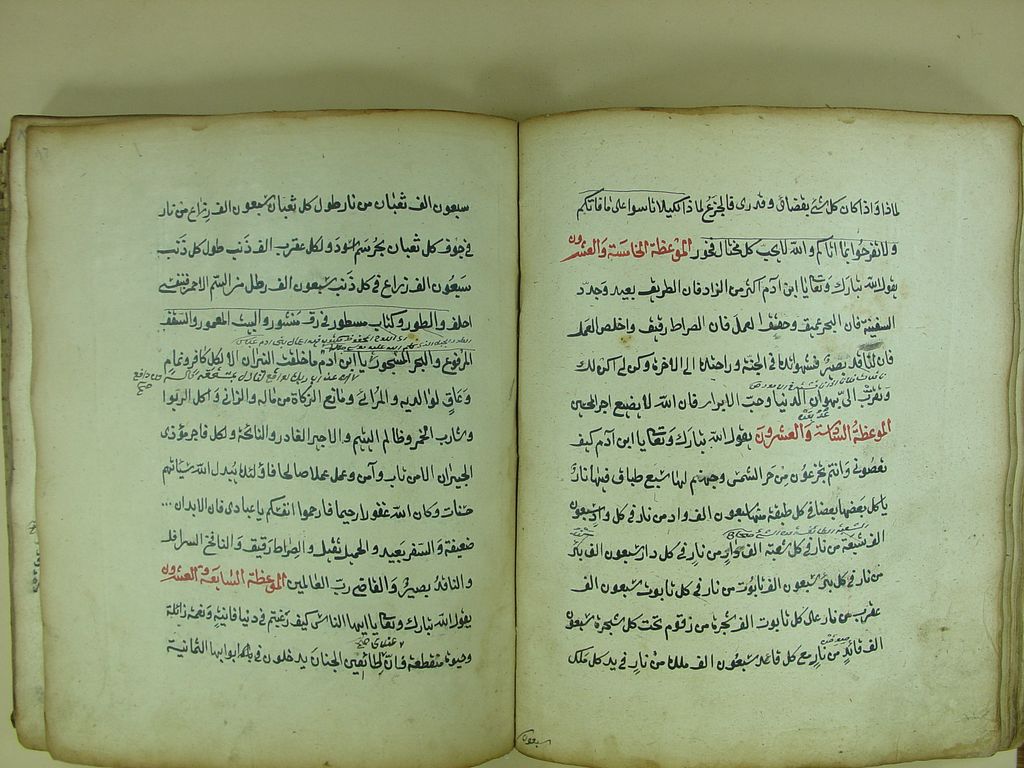 لماذا واذا كان كل شئ بقضائى وقدرى فالجزع لماذا لكيلا تاسوا على ما فاتكم
ولا تفرحوا بما اتاكم والله لا يحب كل مختال فخور الموعظة الخامسة والعشرون
يقول الله تبارك وتعالى يا ابن آدم اكثر من الزاد فان الطريق بعيد وجدد
السفينة فان البحر عميق وخفف العمل فان الصراط رقيق واخلص العمل
فان الناقد بصير فشهواتك فى الجنة وراحتك الى الاخرة وكن لى اكن لك
وتقرب الى بهوان الدنيا وحب الابرار فان الله لا يضيع اجر المحسنين
الموعظة السادسة والعشرون يقول الله تبارك وتعالى يا ابن آدم كيف
تعصونى وانتم تجزعون من حر الشمس وجهنم لها سبع طباق فيها نار
ياكل بعضها بعضا فى كل طبقة منها سبعون الف واد من نار فى كل واد سبعون
الف شعبة من نار فى كل شعبة الف دار من نار فى كل دار سبعون الف بئر
من نار فى كل بئر سبعون الف تابوت من نار فى كل تابوت سبعون الف
عقرب من نار على كل تابوت الف شجرة من زقوم تحت كل شجرة سبعون
الف قائد من نار مع كل قائد سبعون الف ملك من نار فى يد كل ملك
سبعون
سبعون الف ثعبان من نار طول كل ثعبان سبعون الف زراع من نار
فى جوف كل ثعبان بحر سم اسود ولكل عقرب الف ذنب طول كل ذنب
سبعون الف زراع فى كل ذنب سبعون الف رطل من السم الاحمر فبنفسى
احلف والطور وكتاب مسطور فى رق منشور والبيت المعمور والسقف
المرفوع والبحر المسجور يا ابن آدم ما خلقت النيران الا لكل كافر ونمام
وعاق لوالديه والمرائى ومانع الزكاة من ماله والزانى واكل الربوا
وشارب الخمر وظالم اليتيم والاجير الغادر والنائحة ولكل فاجر مؤذى
الجيران الا من تاب وآمن وعمل عملا صالحا فاولئك يبدل الله سيئاتهم
حسنات وكان الله غفورا رحيما فارحموا انفسكم يا عبادى فان الابدان
ضعيفة والسفر بعيد والحمل ثقيل والصراط رقيق والنافخ اسرافيل
والناقد بصير والقاضى رب العالمين الموعظة السابعة والعشرون
يقول الله تبارك وتعالى يا ايها الناس كيف رغبتم فى دنيا فانية ونعمة زائلة
وحيوة منقطعة فان للطائعين الجنان يدخلون فى ابوابها الثمانية